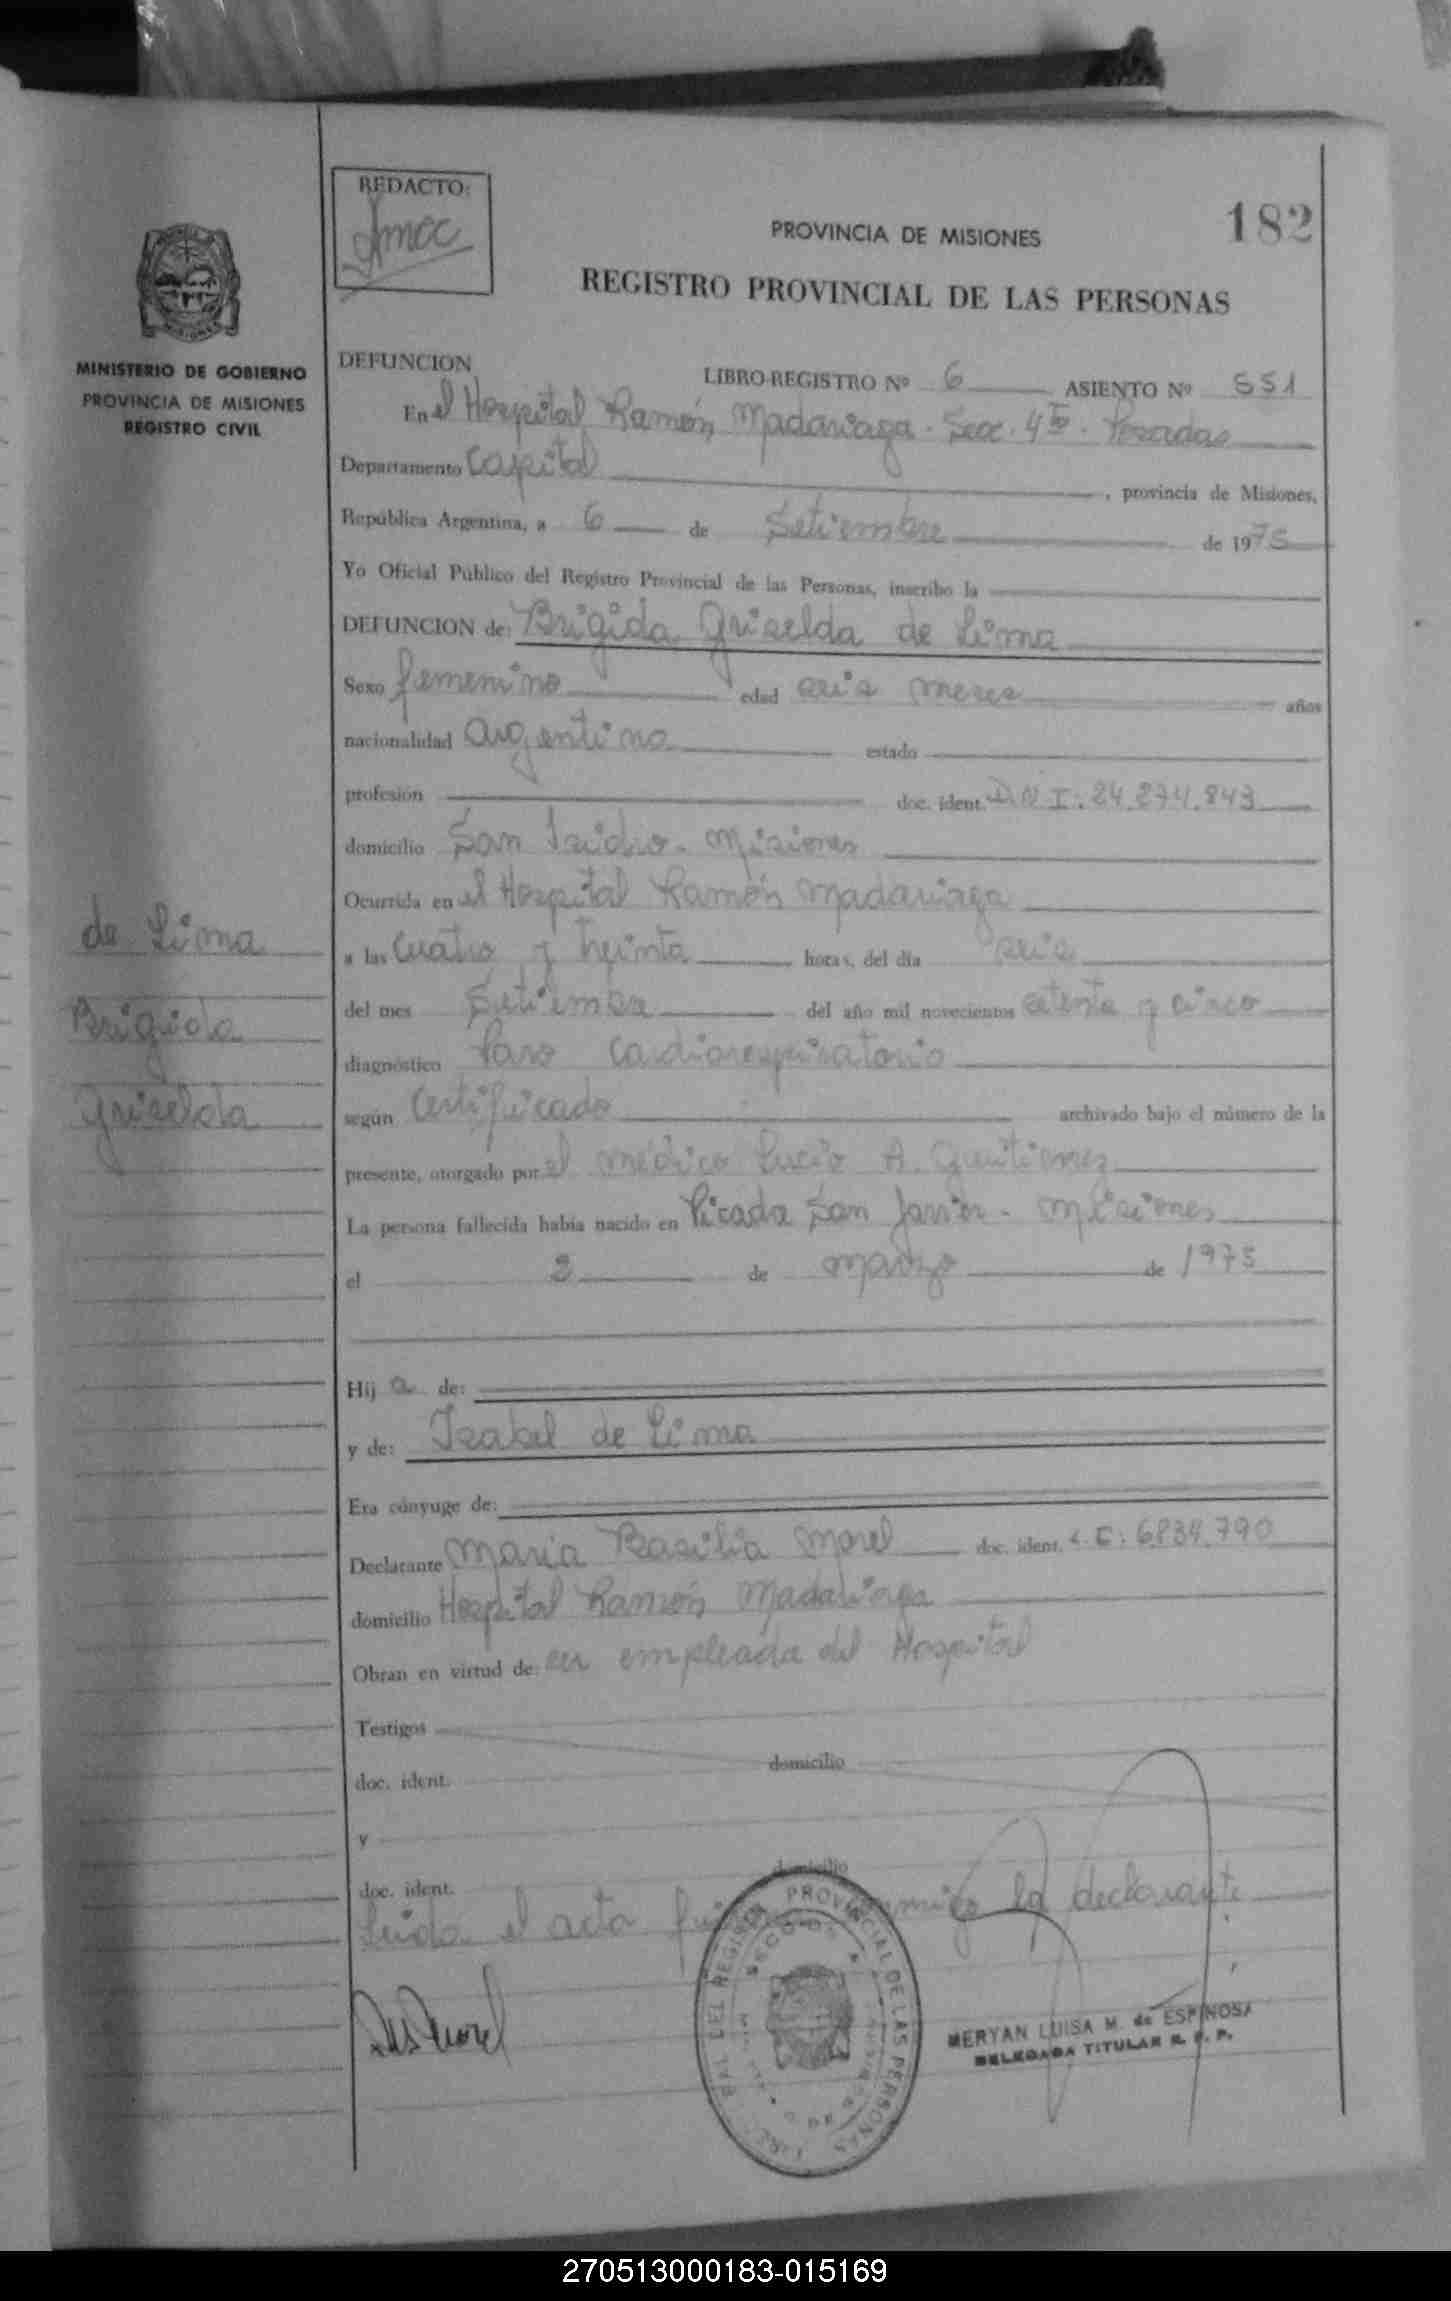 REDACTO:
182
PROVINCIA DE MISIONES
REGISTRO PROVINCIAL DE LAS PERSONAS
MINISTERIO DE GOBIERNO
PROVINCIA DE MISIONES
REGISTRO CIVIL
DEFUNCION
LIBRO-REGISTRO Nº 6 ASIENTO Nº 551
En el Hospital Ramón Madariaga - Secc. 4ta - Posadas
Departamento Capital, provincia de Misiones,
República Argentina, a 6 de Setiembre de 1975
Yo Oficial Público del Registro Provincial de las Personas, inscribo la
DEFUNCION de: Brigida Griselda de Lima
Sexo femenino edad seis meses años
nacionalidad argentino estado
profesión doc. ident. D.N.I: 24.274.843
domicilio San Isidro - Misiones
Ocurrida en el Hospital Ramón Madariaga
de Lima
Brigida
Griselda
a las cuatro y treinta horas, del día seis
del mes Setiembre del año mil novecientos setenta y cinco
diagnóstico Paro Cardiorespiratorio
según Certificado archivado bajo el número de la
presente, otorgado por el médico Lucio A. Gutierrez
La persona fallecida había nacido en Picada San Javier - Misiones
el 2 de marzo de 1975
Hij a de:
y de: Isabel de Lima
Era cónyuge de:
Declarante Maria Basilia Morel doc. ident. L.C: 6.834.790
domicilio Hospital Ramón Madariaga
Obran en virtud de: ser empleada del Hospital
Testigos
doc. ident. domicilio
y
doc. ident. domicilio
Leida el acta la declarante
REGISTRO PROVINCIAL DE LAS PERSONAS
MERYAN LUISA M. de ESPINOSA
DELEGADA TITULAR R. P. P.
270513000183-015169